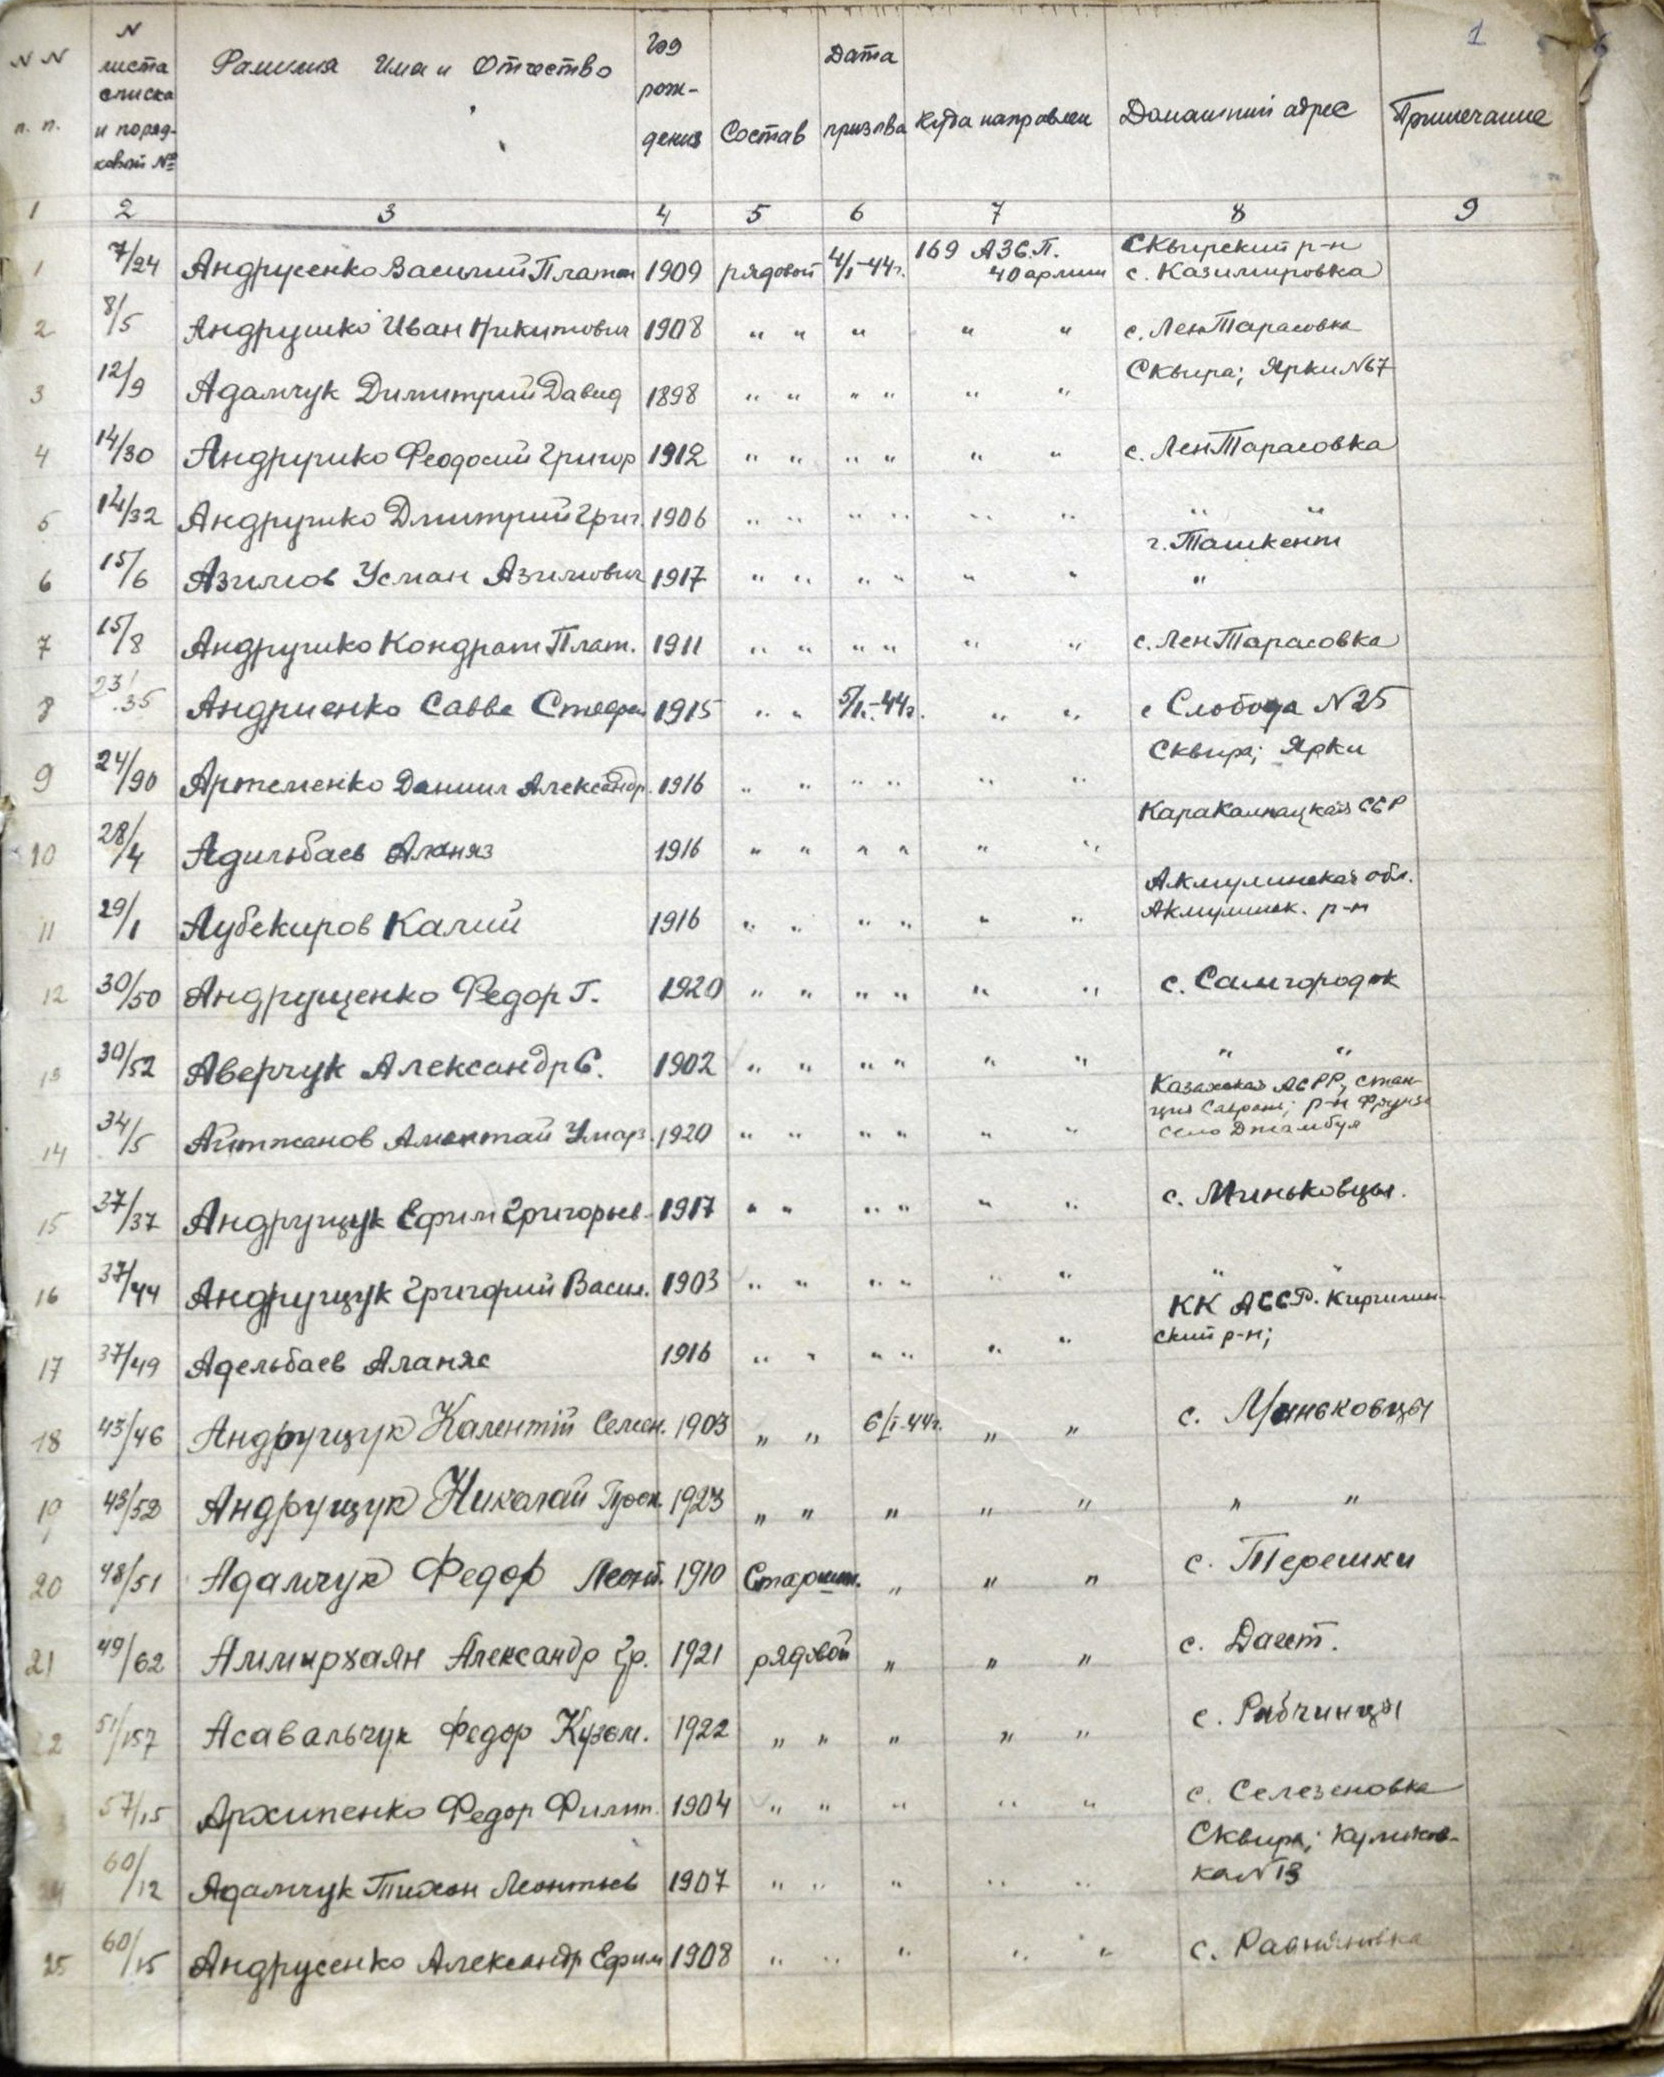 1
N N п. п. | N листа списка и поряд- ковый № | Фамилия Имя и Отчество | Год рож- дения | Состав | Дата призыва | Куда направлен | Домашний адрес | Примечание
1 | 2 | 3 | 4 | 5 | 6 | 7 | 8 | 9
1 | 7/24 | Андрусенко Василий Платон | 1909 | рядовой | 4/I-44г. | 169 АЗС.П. 40 армии | Сквирский р-н с. Казимировка
2 | 8/5 | Андрушко Иван Никитович | 1908 | " " | " | " " | с. ЛенТарасовка
3 | 12/9 | Адамчук Димитрий Давид | 1898 | " " | " " | " " | Сквира; Ярки N67
4 | 14/30 | Андрушко Феодосий Григор | 1912 | " " | " " | " " | с. ЛенТарасовка
5 | 14/32 | Андрушко Дмитрий Григ. | 1906 | " " | " " | " " | " "
6 | 15/6 | Азимов Усман Азимович | 1917 | " " | " " | " " | г. Ташкент "
7 | 15/8 | Андрушко Кондрат Плат. | 1911 | " " | " " | " " | с. ЛенТарасовка
8 | 23/35 | Андриенко Савва Стефан | 1915 | " " | 5/I-44г. | " " | с Слобода N25
9 | 24/90 | Артеменко Даниил Александр. | 1916 | " " | " " | " " | Сквира; Ярки
10 | 28/4 | Адильбаев Аланяз | 1916 | " " | " " | " " | КараКалпацкая ССР
11 | 29/1 | Аубекиров Калий | 1916 | " " | " " | " " | Акмулинская обл. Акмулинск. р-н
12 | 30/50 | Андрущенко Федор Г. | 1920 | " " | " " | " " | с. Самгородок
13 | 30/52 | Аверчук Александр С. | 1902 | " " | " " | " " | " "
14 | 34/5 | Айтжанов Амантай Умар. | 1920 | " " | " " | " " | Казахская АСРР, стан- ция р-н Фрунзе село Джамбул
15 | 37/37 | Андрущук Ефим Григорьев. | 1917 | " " | " " | " " | с. Миньковцы.
16 | 37/44 | Андрущук Григорий Васил. | 1903 | " " | " " | " " | " "
17 | 37/49 | Адельбаев Аланяс | 1916 | " " | " " | " " | КК АССР. ский р-н;
18 | 43/46 | Андрущук Калентій Семен. | 1903 | " " | 6/I-44г. | " " | с. Миньковцы
19 | 43/52 | Андрущук Николай | 1923 | " " | " | " " | " "
20 | 48/51 | Адамчук Федор Леонт. | 1910 | Старшин. | " | " " | с. Терешки
21 | 49/62 | Аммирхаян Александр Гр. | 1921 | рядовой | " | " " | с.
22 | 51/157 | Асавальчук Федор Кузьм. | 1922 | " " | " | " " | с. Рибчинцы
57/15 | Архипенко Федор Филип. | 1904 | " " | " | " " | с. Селезеновка
24 | 60/12 | Адамчук Тихон Леонтьев | 1907 | " " | " | " " | Сквира; Куликов- ка N13
25 | 60/15 | Андрусенко Александр Ефим | 1908 | " " | " | " " | с.